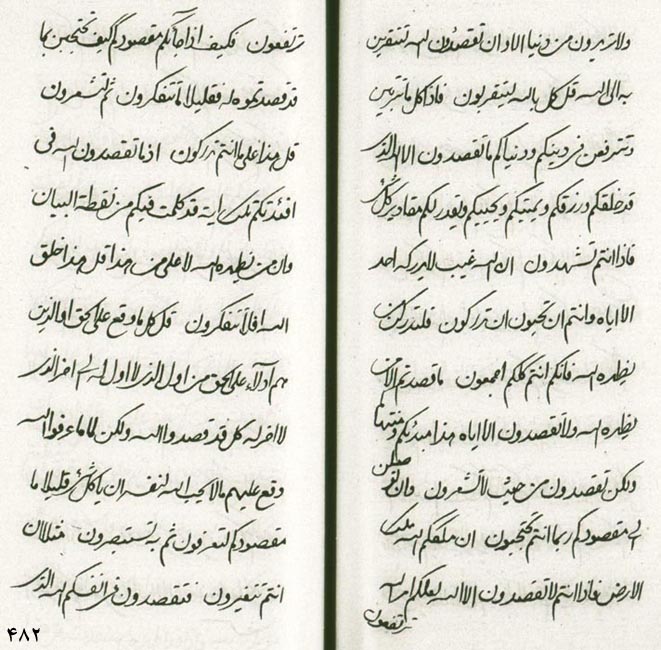 ولا تریدون من دنیا الا وان تقصدون الله تتقربن
به الی الله قل کل بالله لیتقربون فاذا کل ما تریدن
وتترفعن فی دینکم ودنیاکم ما تقصدون الا الله الذی
قد خلقکم ورزقکم ویمیتکم ویحییکم ولیقدر لکم مقادیر کلشئ
فاذا انتم تشهدون ان الله غیب لا یدرکه احد
الا ایاه وانتم ان تحبون ان تدرکون فلتدرکن من
یظهره الله فانکم انتم کلکم اجمعون ما قصدتم الا من
یظهره الله ولا تقصدون الا ایاه هذا مبدئکم ومنتهاکم
ولکن تقصدون من حیث لا تشعرون وان تصلن
الی مقصودکم ربما انتم تحتجبون ان ملککم الله ملک
الارض فاذا انتم لا تقصدون الا الله لعلکم امر الله
ترتفعون
ترتفعون فکیف اذا جائکم مقصودکم کیف تحتجبن بما
قد قصدتموه له فقلیلا ما تتفکرون ثم لتشعرون
قل هذا علی ما انتم تدرکون اذ ما تقصدون الله فی
افئدتکم تلک رایة قد کلمت فیکم من نقطة البیان
وان من یظهره الله لاعلی من هذا قل هذا خلق
الله افلا تتفکرون قل کل ما وقع علی الحق اوالذین
هم ادلاء علی الحق من اول الذی لا اول له الی اخر الذی
لا اخر له کل قد قصدوا الله ولکن لما ما عرفوا الله
وقع علیهم ما لا یحب الله لنفسه ان یا کلشئ قلیلا ما
مقصودکم لتعرفون ثم به لتستبصرون مثل الان
انتم تتغیرون فتقصدون فی انفسکم الله الذی
۴۸۲